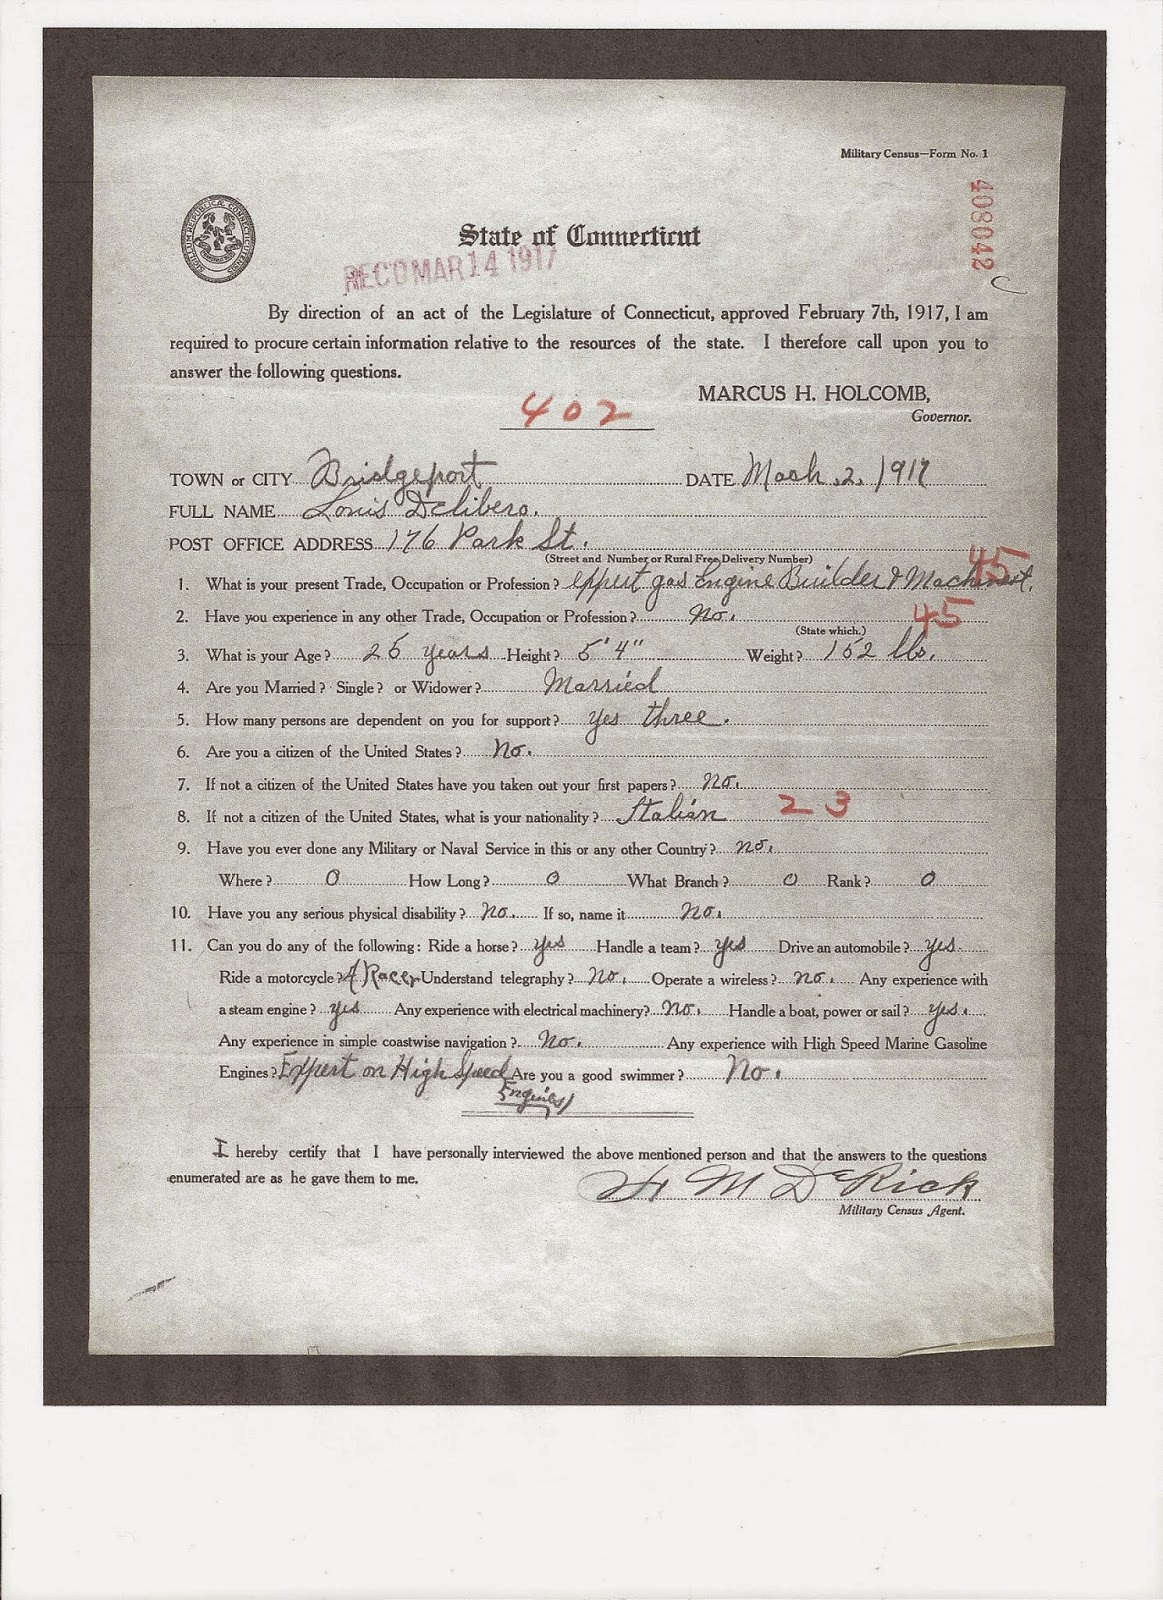 Military Census—Form No. 1
408042
SIGILLUM REIPUBLICÆ CONNECTICUTENSIS
State of Connecticut
REC'D MAR 14 1917
By direction of an act of the Legislature of Connecticut, approved February 7th, 1917, I am
required to procure certain information relative to the resources of the state. I therefore call upon you to
answer the following questions.
MARCUS H. HOLCOMB,
Governor.
402
TOWN or CITY Bridgeport DATE Mach. 2. 1917
FULL NAME Louis Delibero.
POST OFFICE ADDRESS 176 Park St.
(Street and Number or Rural Free Delivery Number)
45
1. What is your present Trade, Occupation or Profession? Expert gas Engine Builder & Machinest.
2. Have you experience in any other Trade, Occupation or Profession? No. 45
(State which.)
3. What is your Age? 25 years Height? 5'4" Weight? 152 lbs.
4. Are you Married? Single? or Widower? Married
5. How many persons are dependent on you for support? yes three.
6. Are you a citizen of the United States? No.
7. If not a citizen of the United States have you taken out your first papers? No.
8. If not a citizen of the United States, what is your nationality? Italian 23
9. Have you ever done any Military or Naval Service in this or any other Country? no.
Where? 0 How Long? 0 What Branch? 0 Rank? 0
10. Have you any serious physical disability? No. If so, name it No.
11. Can you do any of the following: Ride a horse? yes Handle a team? yes Drive an automobile? yes
Ride a motorcycle? A Racer Understand telegraphy? No. Operate a wireless? no. Any experience with
a steam engine? yes Any experience with electrical machinery? No. Handle a boat, power or sail? yes.
Any experience in simple coastwise navigation? No. Any experience with High Speed Marine Gasoline
Engines? Expert on High Speed Are you a good swimmer? No.
Engines
I hereby certify that I have personally interviewed the above mentioned person and that the answers to the questions
enumerated are as he gave them to me.
M DeRick
Military Census Agent.